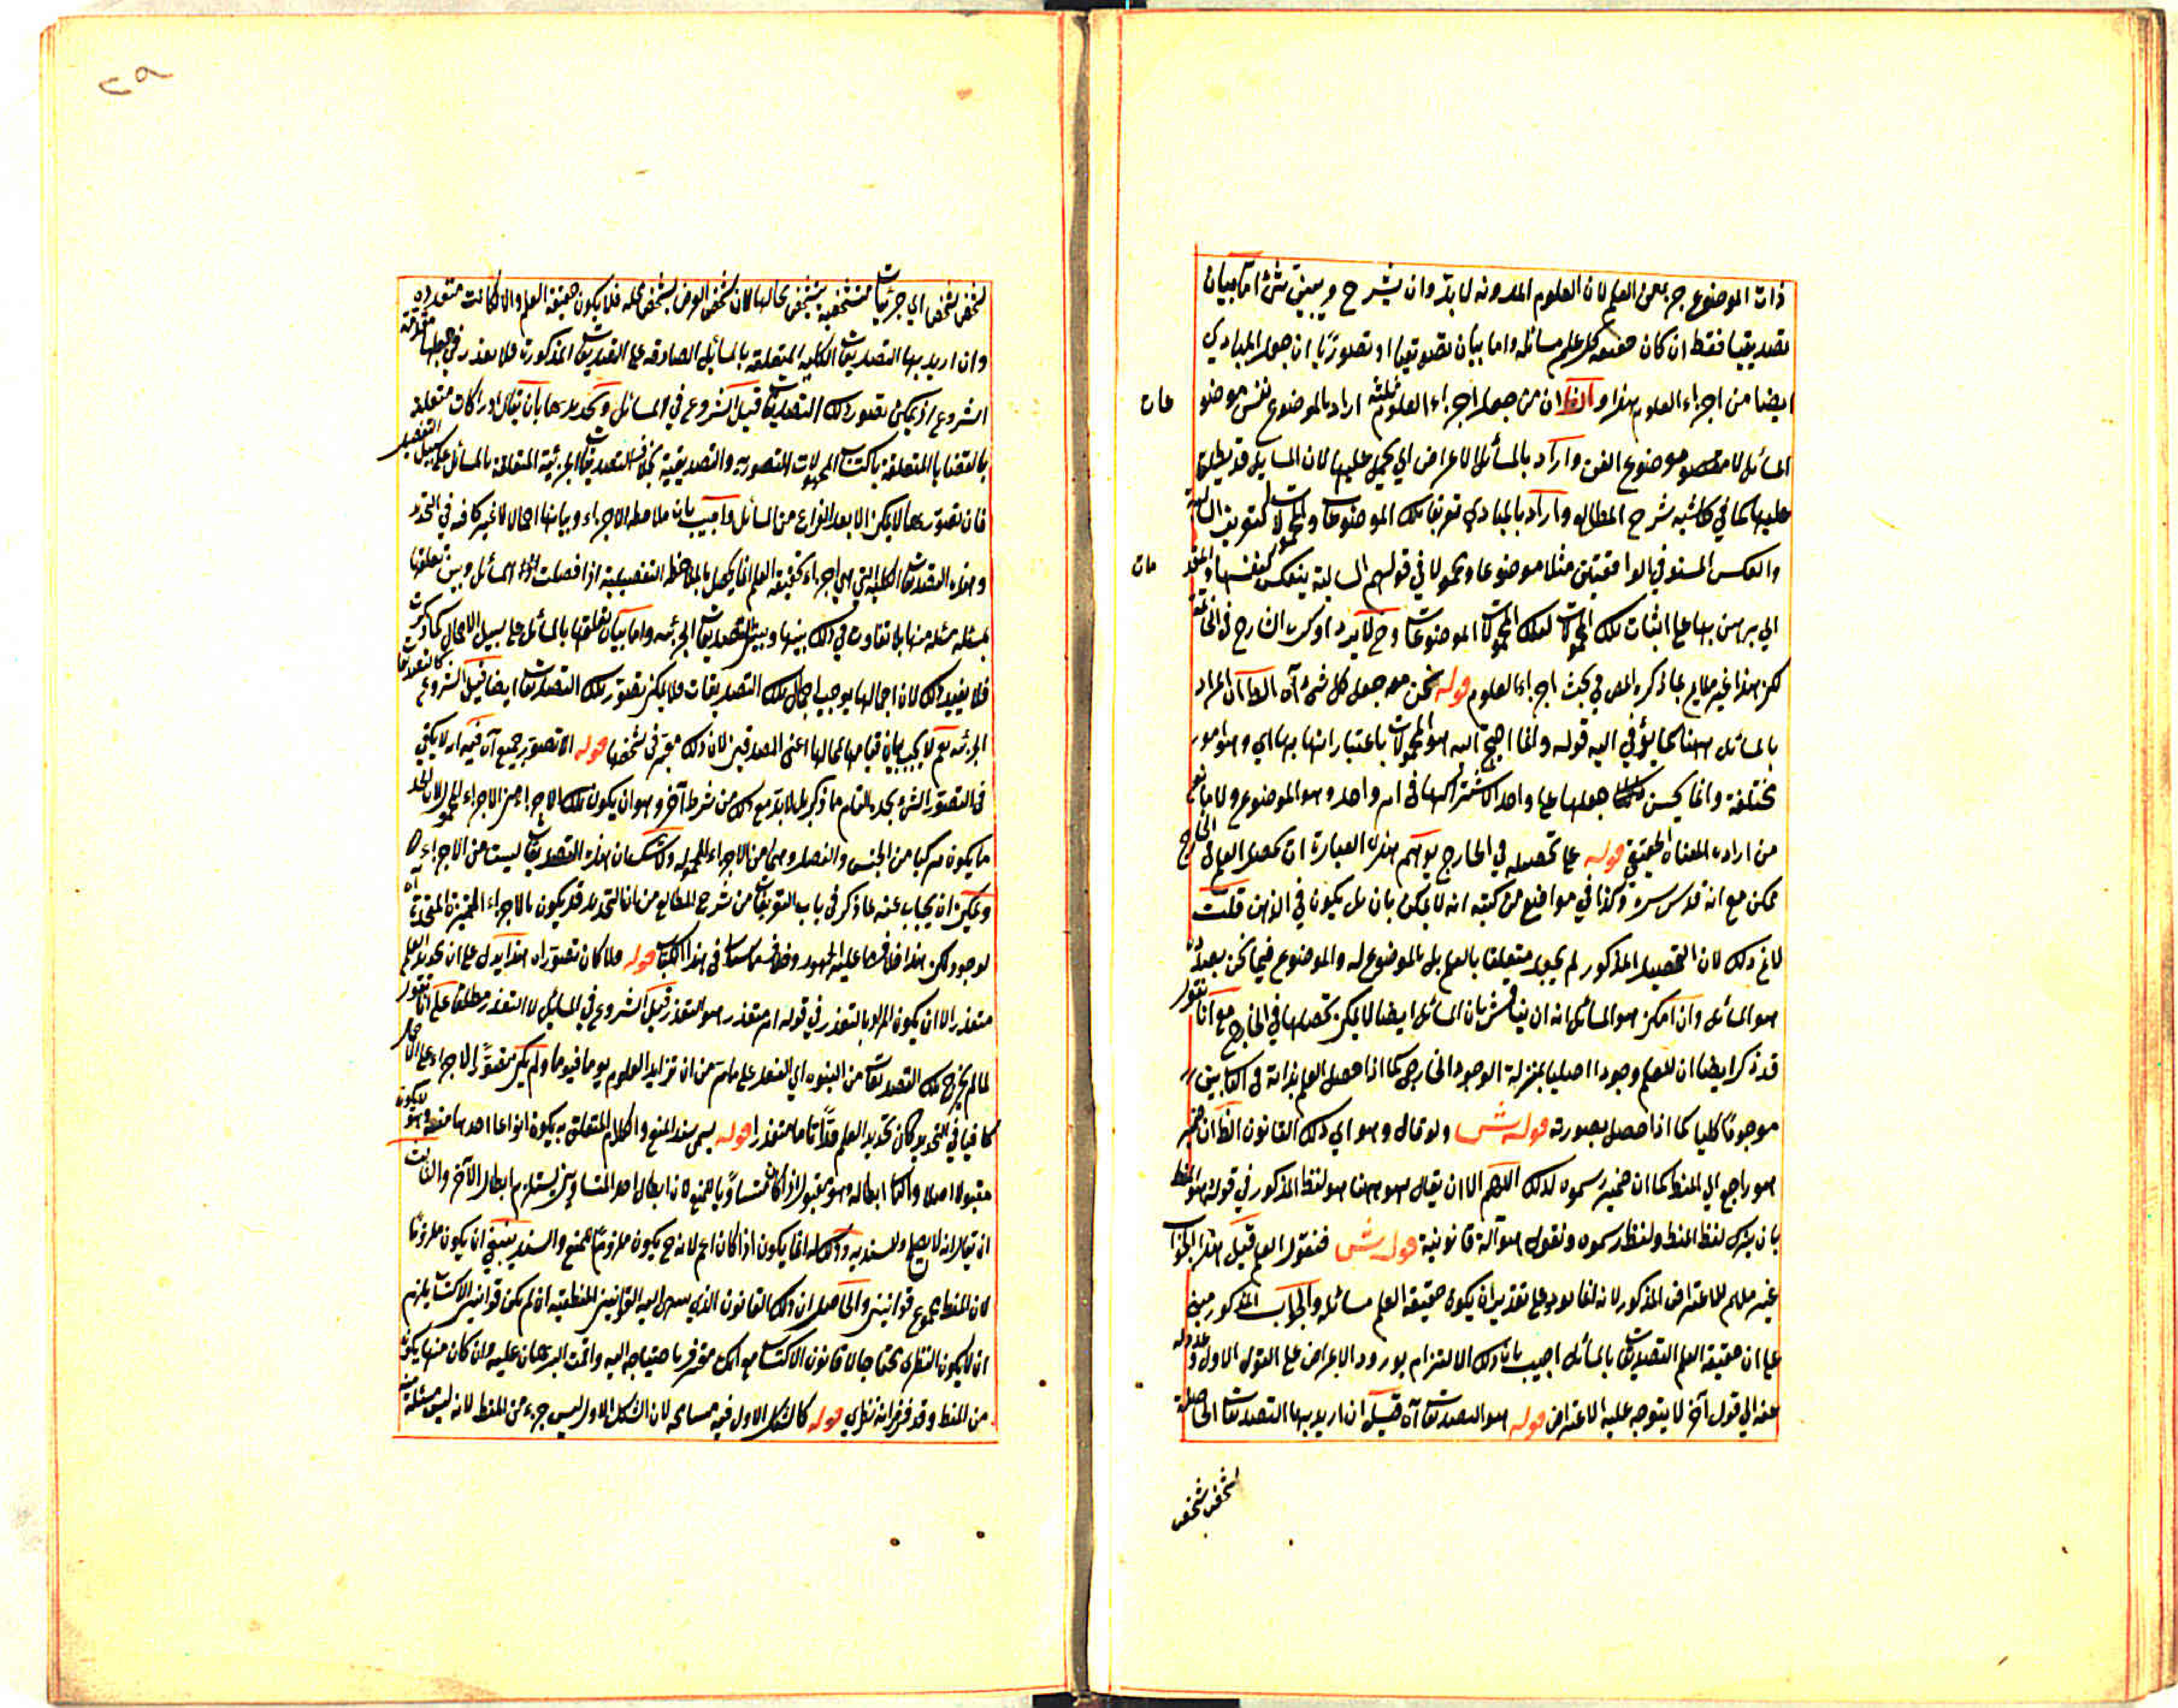 ذات الموضوع جزءا من العلم لان العلوم المدونه لابد وان يشرح ويبين شئ اما بيان
تصديقيا فقط ان كان حقيقه كل علم مسائله واما بيان تصديقيا او تصوريا ان جعل المبادي
ايضا من اجزاء العلوم هذا و ان من جعل اجزاء العلوم ثلثه اراد بالموضوع نفس موضو
عات
المسائل لا موضوع الفن واراد بالمسائل الاعراض اي يحمل عليها لان المسايل قد يطلق
عليها كما في حاشيه شرح المطالع واراد بالمبادي تعريف تلك الموضوعات والمحمولات كتعريف السالبة
والعكس المستو في الواقعتين مثلا موضوعا ومحمولا في قولهم السالبة ينعكس كنفسها
الي براهين بها علي اثبات تلك المحمولات لتلك الموضوعات وح لا يرد ما ذكره الشارح في
لكن هذا غير ملايم لما ذكره المص في بحث اجزاء العلوم قوله نحن معه جعل كل شئ آه الظ ان المراد
بالمسائل ههنا كما يؤمي اليه قوله وانما احتج اليه هو المحمولات باعتبار انها بها اي وهو امور
مختلفة وانما يحسن جعلها علم واحد لاشتراكها في امر واحد وهو الموضوع ولا مانع
من ارادة المعناه الحقيقي قوله علي تحصيله في الخارج يوهم هذه العبارة ان تحصيل العلم في الخارج
ممكن مع انه قدس سره ذكر في مواضع من كتبه انه لا يمكن بان بل يكون في الذهن قلت
لا نم ذلك لان التحصيل المذكور لم يجعل متعلقا بالعلم بل بالموضوع له والموضوع فيما نحن بصدده
هو المسائل وان امكن هو المسائل انه ان يناقش بان المسائل ايضا لا يمكن تحصيلها في الخارج مع انا نقول
قد ذكر ايضا ان للعلم وجودا اصليا بمنزلة الوجود الخارجي كما اذا حصل العلم بذاته في
موجودا ظليا كما اذا حصل بصورته قوله ش ولو قال وهو اي ذلك القانون الظ ان ضمير
هو راجع الي المنطق كما ان ضمير رسموه لذلك اللهم الا ان يقال هو ههنا هو لفظ المذكور في قوله هو المنطق
بان يترك لفظ المنطق ولفظ رسموه ونقول هو آلة قانونية قوله ش فنقول العلم قيل هذا الجواب
غير ملايم للاعتراض المذكور لانه انما يورد علي تقدير ان يكون حقيقة العلم مسائله والجواب المذكور مبني
علي ان حقيقة العلم التصديقات بالمسائل اجيب بان ذلك الالتزام بورود الاعراض علي القول الاول وعدوله
عنه الي قول آخر لا يتوجه عليه الاعتراض قوله هو التصديقات آه قيل ان اريد بها التصديقات الحاصلة
لشخص شخص
لشخص شخص اي جزئيات متشخصة بتشخص محالها لان تشخص العرض بتشخص محله فلا يكون حقيقة العلم والا لكانت متعددة
وان اريد بها التصديقات الكلية المتعلقة بالمسائل الصادقه علي التصديقات المذكورة فلا تعذر في جعلها مقدمة
الشروع اذ يمكن تصور ذلك التصديقات قبل الشروع في المسائل وتحديدها بان يقال ادراكات متعلقة
بالقضايا المتعلقة باكتساب المجهولات التصورية والتصديقية بخلاف التصديقات الجزئية المتعلقة بالمسائل علي سبيل التفصيل
فان تصورها لا يمكن الا بعد الفراغ من المسائل واجيب بان ملاحظة الاجزاء وبيانها اجمالا لا غير كافيه في التحديد
وهذه التصديقات الكلية التي هي اجزاء لحقيقة العلم انما يحصل بالملاحظة التفصيلية اذا فصلت المسائل وبين تعلقها
بمسئله مسئله منها بلا تفاوت في ذلك بينها وبين التصديقات الجزئيه واما بيان تعلقها بالمسائل علي سبيل الاجمال كما ذكرت
فلا يفيد ذلك لان اجمالها يوجب اجمال تلك التصديقات فلا يمكن تصور تلك التصديقات ايضا قبل الشروع كالتصديقات
الجزئيه نعم لا يجب بيان قيامها بمحالها اعني المصدقين لان ذلك معتبر في تشخصها قوله الا تصور بجميع آه فيه انه لا يكفي
في التصور الشئ بحده التام ما ذكر بل لابد مع ذلك من شرط آخر وهو ان يكون تلك الاجزاء من الاجزاء المحموله لان الحد
ما يكون مركبا من الجنس والفصل وهما من الاجزاء المحموله ولا شك ان هذه التصديقات ليست من الاجزاء
ويمكن ان يجاب عنه بما ذكر في باب التعريفات من شرح المطالع من ان التحديد قد يكون بالاجزاء الغير المتحدة
لوجود لكن هذا خلاف ما عليه الجمهور وخلاف ما سياتي في هذا الكتاب قوله فلا كان تصوراه هذا يدل علي ان تحديد العلم
متعذر الا ان يكون المراد بالتعذر في قوله انه متعذر هو التعذر قبل الشروع في المسائل لا التعذر مطلقا علي انا نقول
لما لم يخرج تلك التصديقات من القوه الي الفعل علي ما مر من ان تزايد العلوم يوما فيوما ولم يكن تصور الاجزاء علي الاجمال
كافيا في التحديد كان تحديد العلم حدا تاما متعذرا قوله يسمي سند المنع والكلام المتعلق به يكون انواعا احدها منعه وهو لا يكون
مقبولا اصلا والثاني ابطاله وهو مقبول اذا كان مساويا للمنع لان ابطال احد المتساويين يستلزم ابطال الآخر والثالث
ان يقال انه لا يصلح للسنديه وذلك انما يكون اذا كان اعم لانه ح يكون ملزوما للمنع والسند ينبغي ان يكون ملزوما
لان المنطق مجموع قوانين والحاصل ان ذلك القانون الذي يحتاج اليه القوانين المنطقيه ان لم يكن قوانين الاكتساب يلزم
ان لا يكون النظري محتاجا الي قانون الاكتساب مع انك معترف باحتياجه اليه واقمت البرهان عليه وان كان منها يكون
من المنطق وقد فرض انه نظري قوله كالشكل الاول فيه مسامحه لان الشكل الاول ليس جزءا من المنطق لانه ليس مسئلة منه